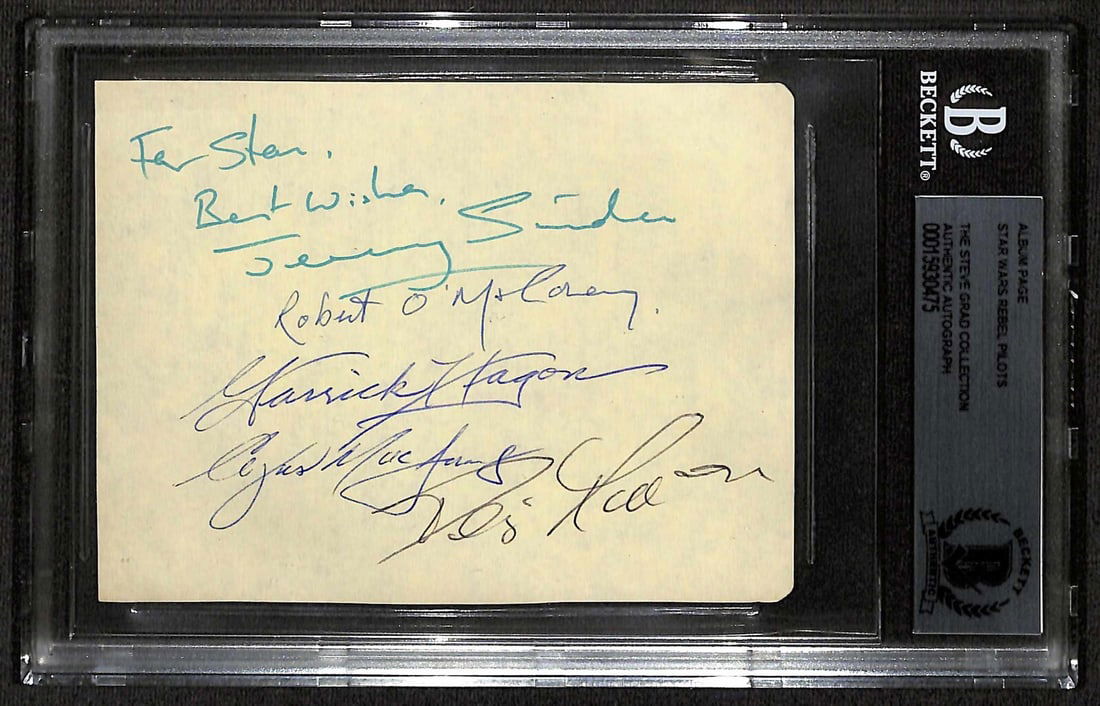 For Stan.
Best Wishes,
Jeremy Sinden
Robert O'Moloney.
Garrick Hagon
Angus MacInnes
BECKETT®
ALBUM PAGE
STAR WARS REBEL PILOTS
THE STEVE GRAD COLLECTION
AUTHENTIC AUTOGRAPH
00015930475
BECKETT
AUTHENTIC